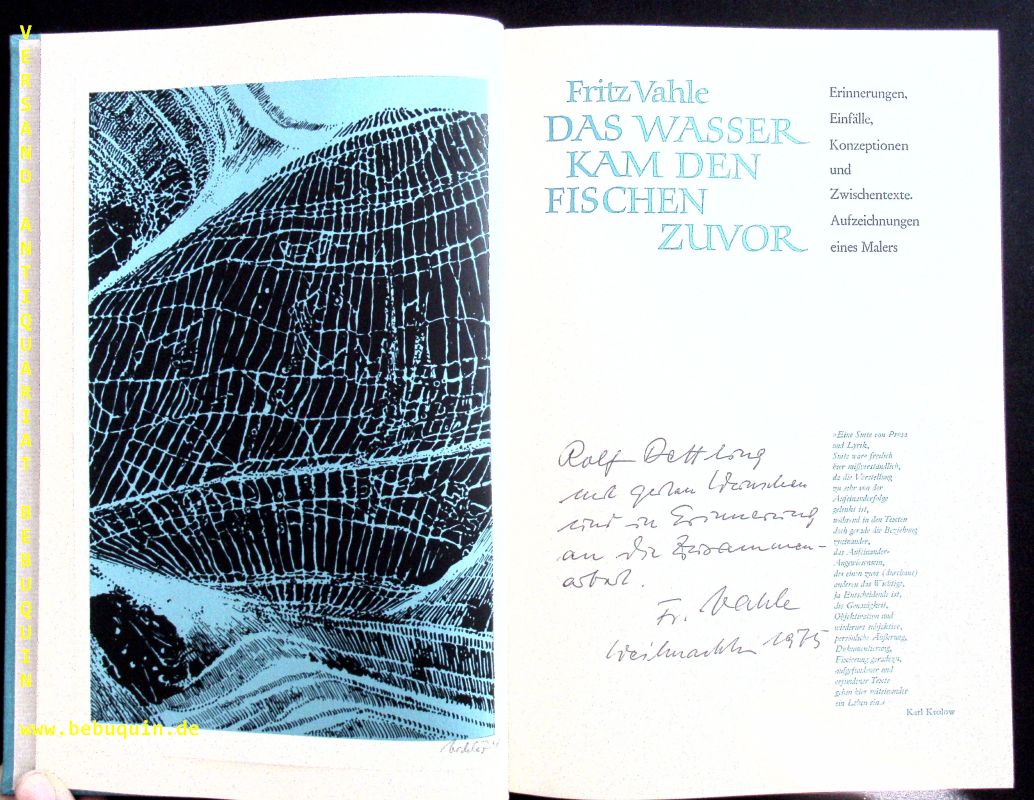 VERSAND ANTIQUARIAT BEBUQUIN
www.bebuquin.de
Fritz Vahle
DAS WASSER
KAM DEN
FISCHEN
ZUVOR
Erinnerungen,
Einfälle,
Konzeptionen
und
Zwischentexte.
Aufzeichnungen
eines Malers
Rolf Dettling
mit guten Wünschen
und in Erinnerung
an die Zusammen-
arbeit.
Fr. Vahle
Weihnachten 1975
»Eine Suite von Prosa
und Lyrik,
Suite wäre freilich
hier mißverständlich,
da die Vorstellung
zu sehr von der
Aufeinanderfolge
gelenkt ist,
während in den Texten
doch gerade die Beziehung
zueinander,
das Aufeinander-
Angewiesensein,
des einen zum (durchaus)
anderen das Wichtige,
ja Entscheidende ist,
die Genauigkeit,
Objektivation und
wiederum subjektive,
persönliche Äußerung,
Dokumentierung,
Fixierung geradezu,
aufgefundener und
erfundener Texte
gehen hier miteinander
ein Leben ein.«
Karl Krolow